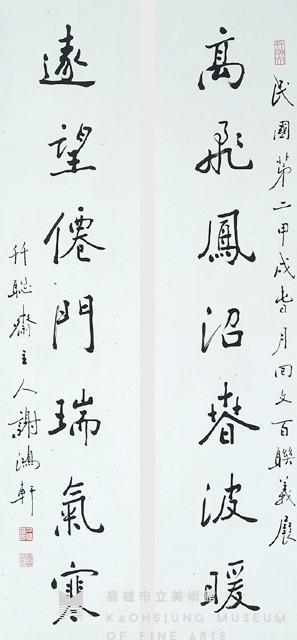 民國第二甲戌春月回文百聯義展
高飛鳳沼春波暖
遠望僊門瑞氣寒
千聯齋主人謝鴻軒
高雄市立美術館
KAOHSIUNG MUSEUM
OF FINE ARTS